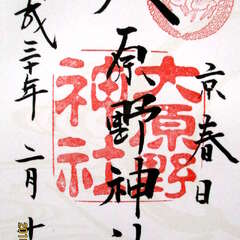 京春日
大原野神社
大原野
神社
平成三十年二月十